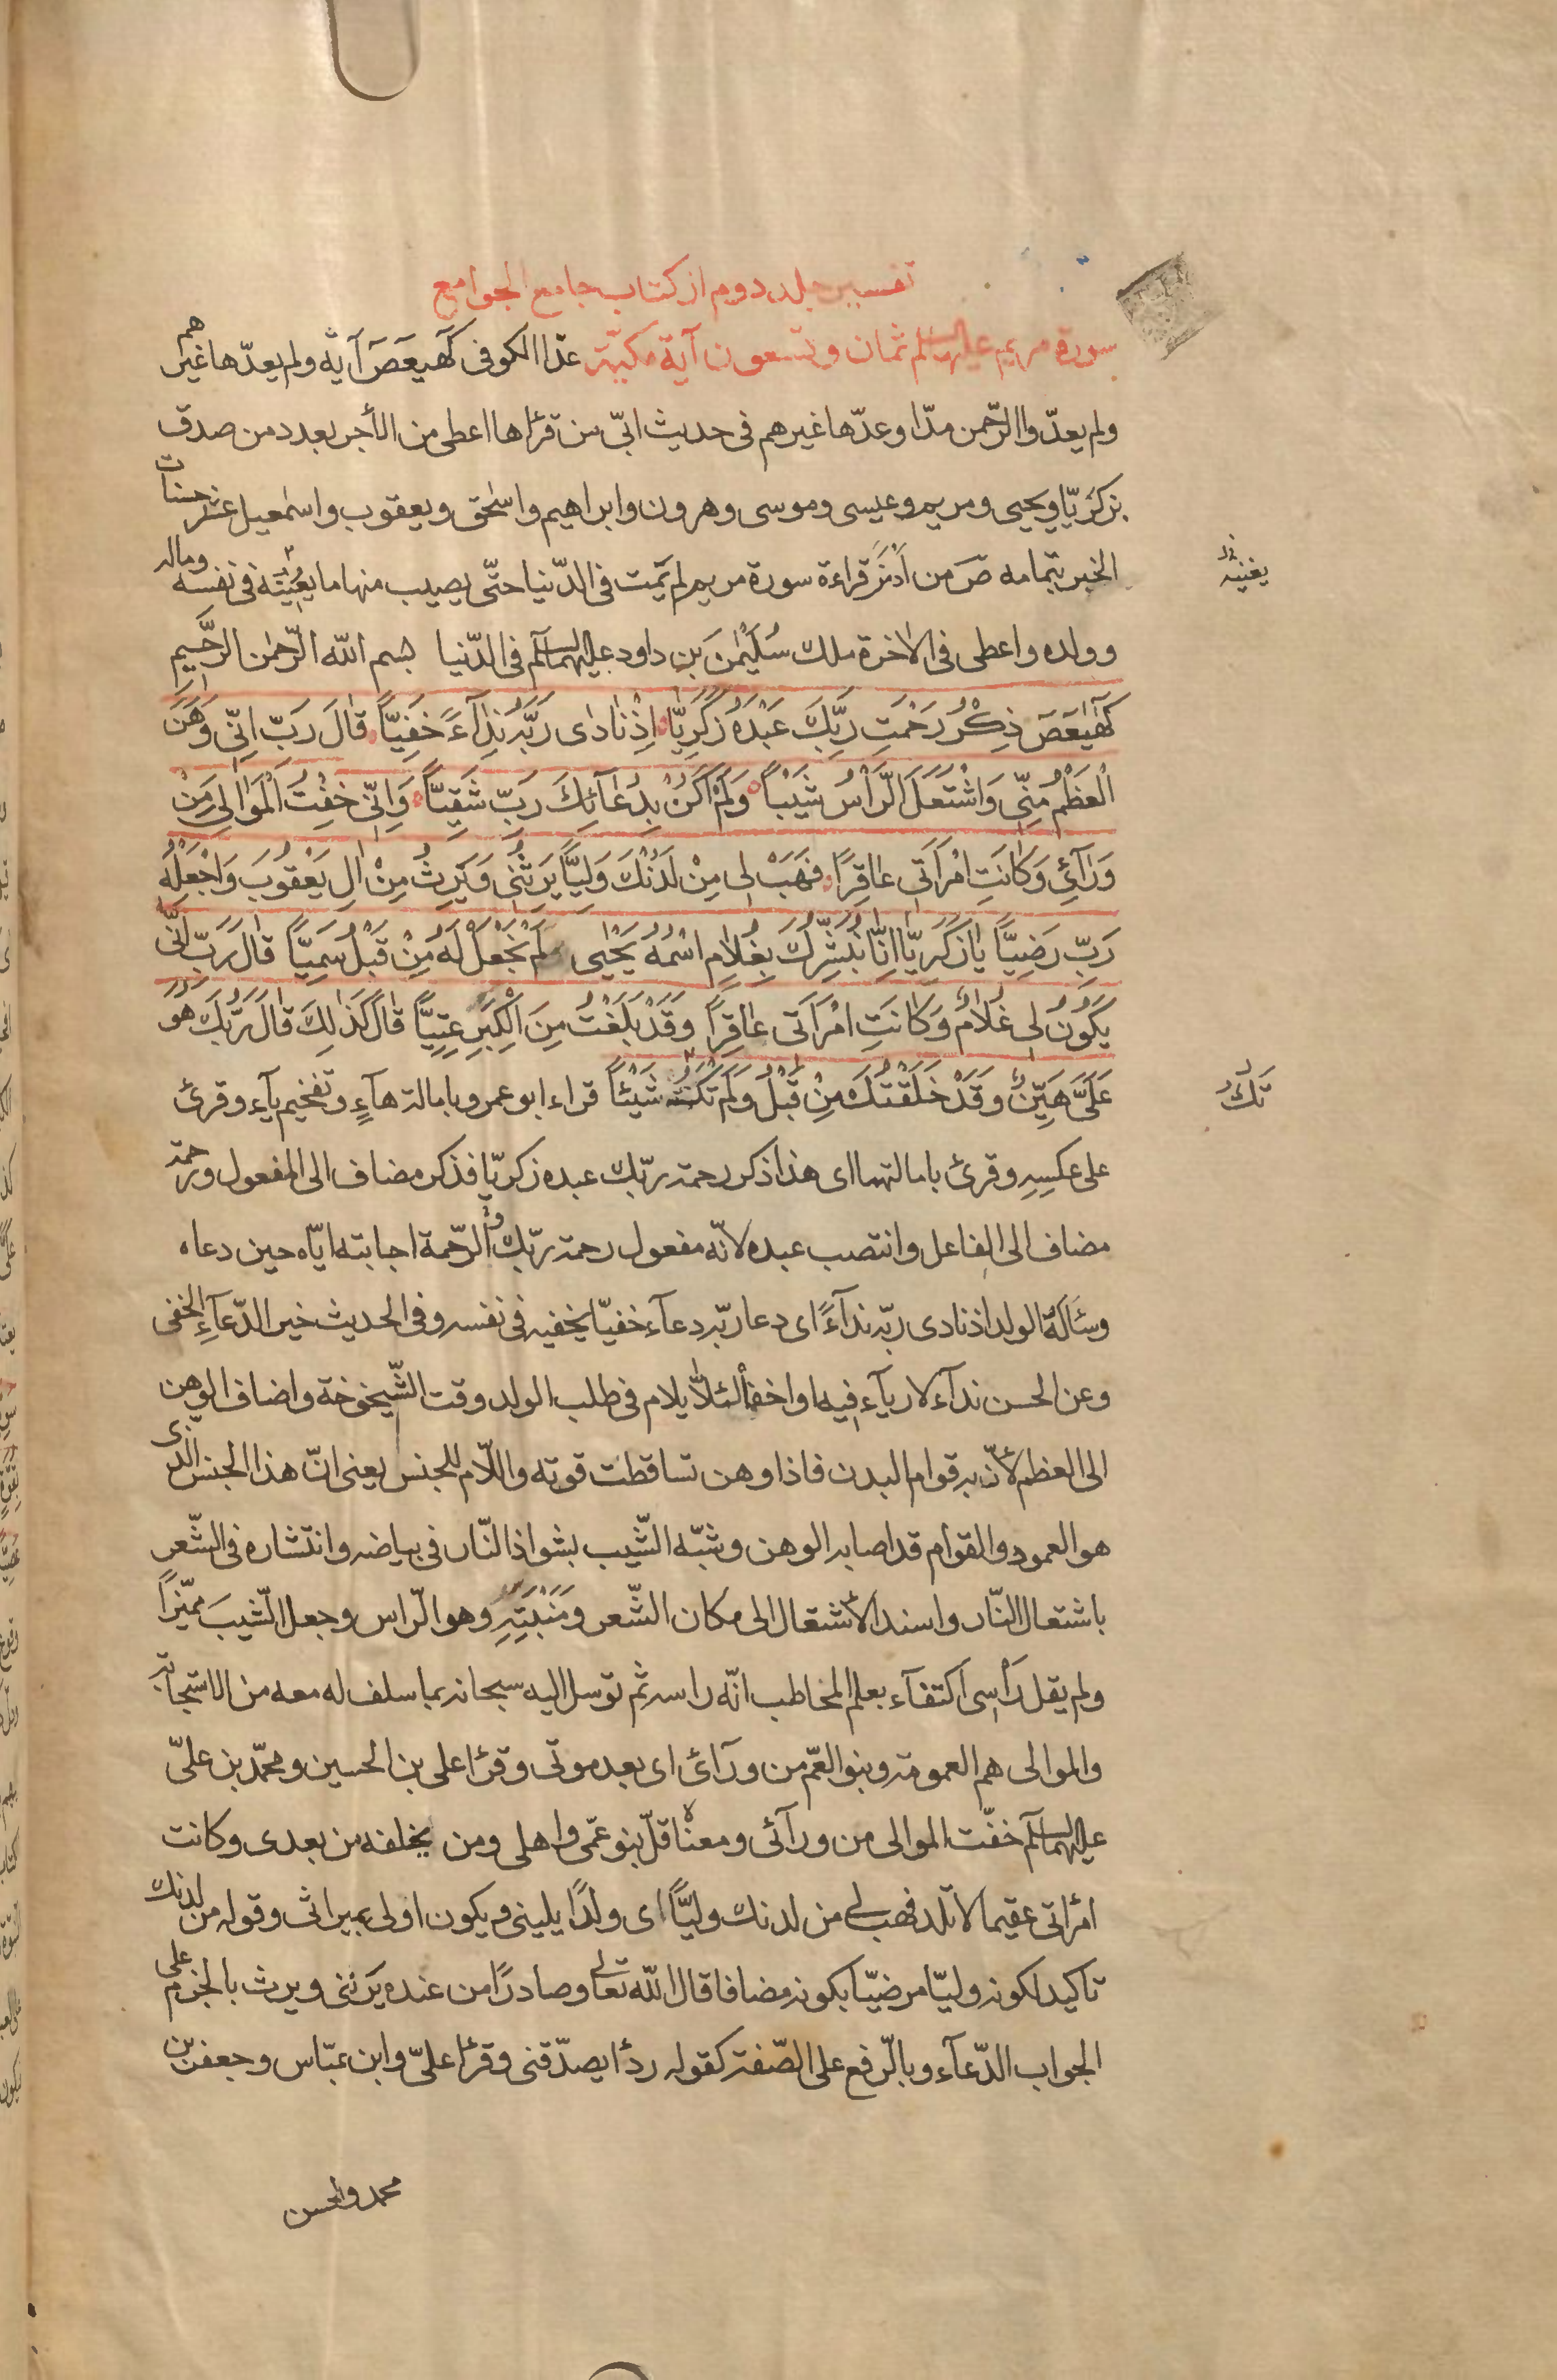 تفسير جلد دوم از كتاب جامع الجوامع
سورة مريم عليها السلم ثمان وتسعون آية مكيّة عدّ الكوفى كهيعص آية ولم يعدّها غيرهم
ولم يعدّوا الرّحمن مدّا وعدّها غيرهم فى حديث ابىّ من قرئها اعطى من الأجر بعدد من صدق
بزكريّا ويحيى ومريم وعيسى وموسى وهرون وابراهيم واسٰحق ويعقوب واسمٰعيل عشر حسنات
الخبر بتمامه صَ من اَدْمَنَ قراءة سورة مريم لم يمت فى الدّنيا حتّى يصيب منها ما يعينه فى نفسه وماله
يغنيه
وولده واعطى فى الاٰخرة ملك سُلَيْمٰنَ بن داود عليهما السلم فى الدّنيا بسم الله الرّحمٰن الرَّحيمِ
كٓهٰيٰعٓصَ ذِكْرُ رَحْمَتِ رَبِّكَ عَبْدَهُ زَكَرِيّٰا اِذْ نٰادٰى رَبَّهُ نِدٰآءً خَفِيّاً قٰالَ رَبِّ اِنّى وَهَنَ
الْعَظْمُ مِنّى وَاشْتَعَلَ الرَّأسُ شَيْباً وَلَمْ اَكُنْ بِدُعٰآئِكَ رَبِّ شَقِيّاً وَاِنّى خِفْتُ الْمَوٰالِىَ مِنْ
وَرٰآئى وَكٰانَتِ امْرَاَتى عٰاقِرًا فَهَبْ لى مِنْ لَدُنْكَ وَلِيّاً يَرِثُنى وَيَرِثُ مِنْ اٰلِ يَعْقُوبَ وَاجْعَلْهُ
رَبِّ رَضِيّاً يٰا زَكَرِيّٰا اِنّٰا نُبَشِّرُكَ بِغُلٰامٍ اسْمُهُ يَحْيٰى لَمْ نَجْعَلْ لَهُ مِنْ قَبْلُ سَمِيّاً قٰالَ رَبِّ اَنّٰى
يَكُونُ لى غُلٰامٌ وَكٰانَتِ امْرَاَتى عٰاقِرًا وَقَدْ بَلَغْتُ مِنَ الْكِبَرِ عِتِيّاً قٰالَ كَذٰلِكَ قٰالَ رَبُّكَ هُوَ
عَلَىَّ هَيِّنٌ وَقَدْ خَلَقْتُكَ مِنْ قَبْلُ وَلَمْ تَكُ شَيْئاً قراء ابو عمرو بامالة هآءٍ وتفخيم يآءٍ وقرئ
تَكُ
على عكسِهِ وقرئ بامالتهما اى هذا ذكر رحمة ربّك عبده زكريّا فذكر مضاف الى المفعول ورحمة
مضاف الى الفاعل وانتصب عبده لانّه مفعول رحمة ربّك والرّحمة اجابته ايّاه حين دعاه
وسَاَلَهُ الولد اذ نادى ربّه نداءً اى دعا ربّه دعآء خفيّا يخفيه فى نفسه وفى الحديث خير الدّعآءِ الخفى
وعن الحسن ندآء لا ريآء فيه او اخفاه لئلّا يلام فى طلب الولد وقت الشّيخوخة واضاف الوهن
الى العظم لأنّ به قوام البدن فاذا وهن تساقطت قوته واللّام للجنس يعنى انّ هذا الجنس الّذى
هو العمود والقوام قد اصابه الوهن وشبّه الشّيب بشواذ النّار فى بياضه وانتشاره فى الشّعر
باشتعال النّار واسند الاشتعال الى مكان الشّعر ومَنْبَتِهِ وهو الرّاس وجعل الشّيبَ مميّزاً
ولم يقل رَأسى اكتفآء بعلم المخاطب انّه راسه ثم توسل اليه سبحانه بما سلف له معه من الاستجابة
والموالى هم العمومة وبنو العّم من ورآئ اى بعد موتى وقرئا على بن الحسين ومحمّد بن علىّ
عليهما السلم خفّت الموالى من ورآئى ومعناه قلّ بنو عمّى واهلى ومن يخلفه من بعدى وكانت
امرأتى عقيما لا تلد فهب لى من لدنك وليّاً اى ولدًا يلينى ويكون اولى بميراثى وقوله من لدنك
تاكيد لكونه وليّا مرضيّا بكونه مضافا قال الله تعالى وصادرًا من عنده يَرثنى ويرث بالجزم على
الجواب الدّعآء وبالرّفع على الصّفة كقوله ردءا يصدّقنى وقرئا علىّ وابن عبّاس وجعفر بن
محمد والحسن